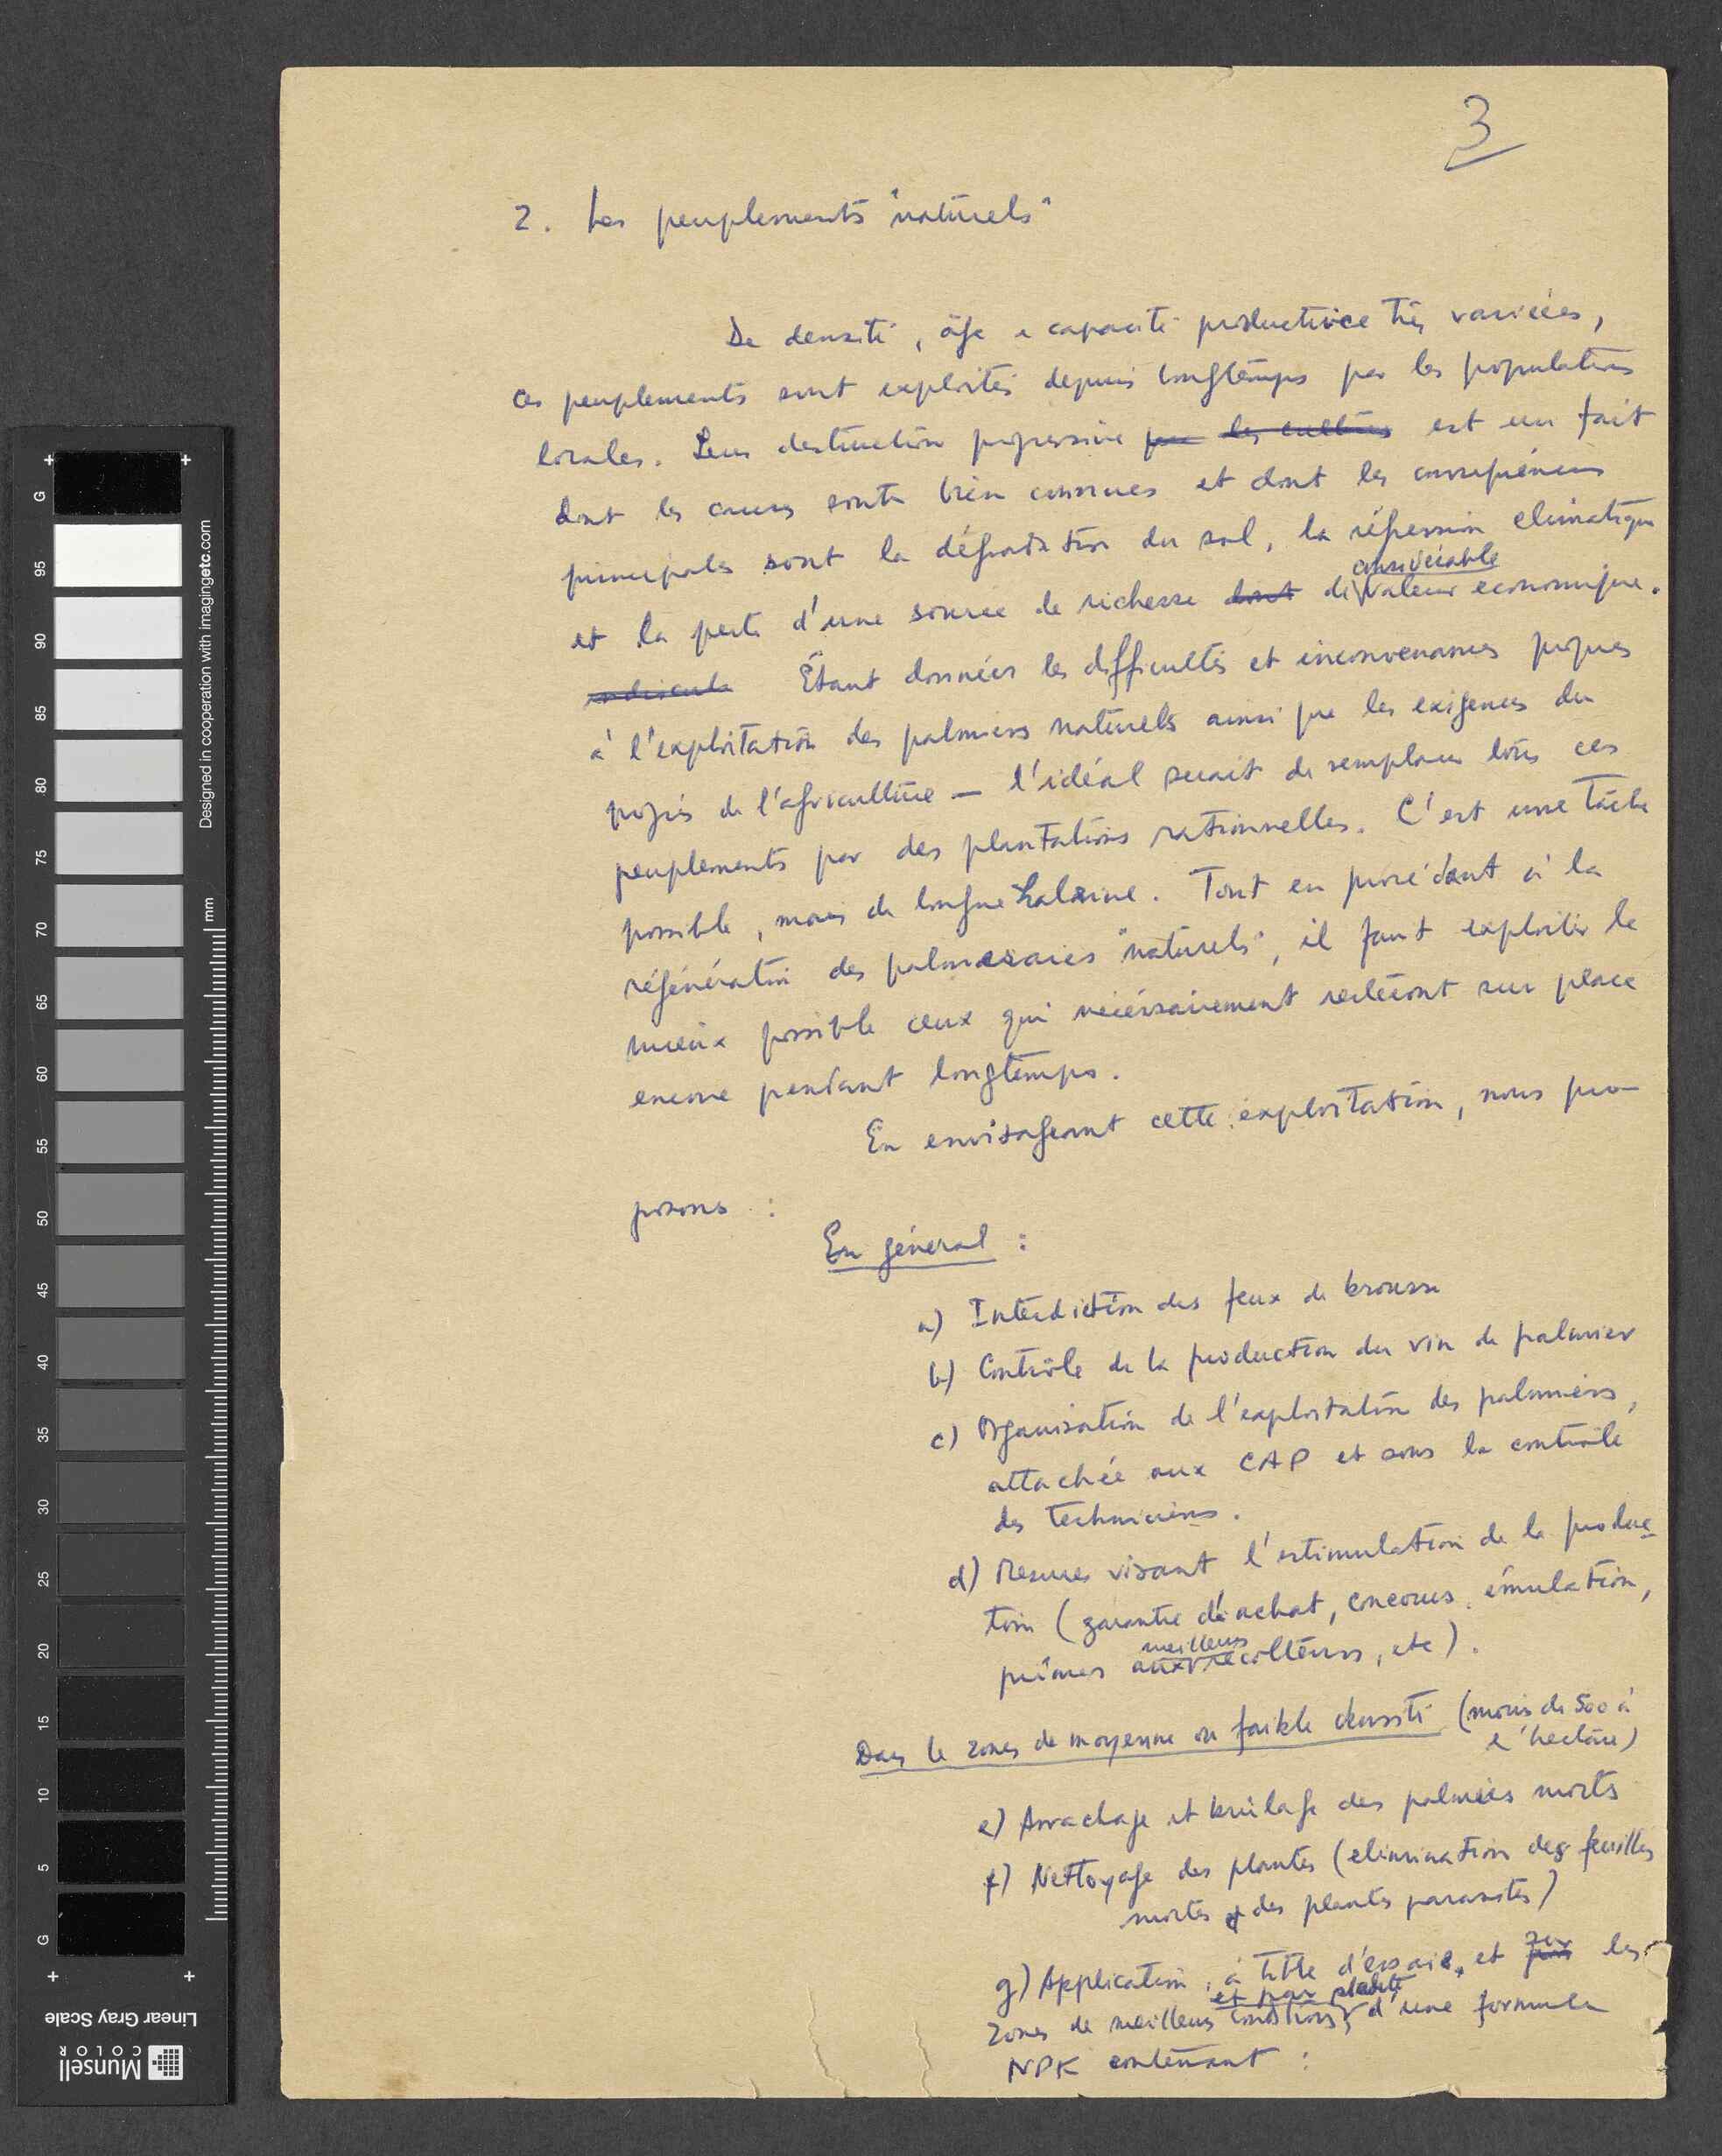 3
2. Les peuplements "naturels"
De densité, âge e capacité productrice très variées,
ces peuplements sont exploités depuis longtemps par les populations
locales. Leur destruction progressive par les cultures est un fait
dont les causes sont bien connues et dont les conséquences
principales sont la dégradation du sol, la régression climatique
considérable
et la perte d'une source de richesse dont de valeur economique.
Étant données les difficultés et inconvenances propres
à l'exploitation des palmiers naturels ainsi que les exigences du
progrès de l'agriculture — l'idéal serait de remplacer tous ces
peuplements par des plantations rationnelles. C'est une tâche
possible, mais de longue haleine. Tout en procédant à la
régénération des palmeraies "naturels", il faut exploiter le
mieux possible ceux qui nécéssairement resteront sur place
encore pendant longtemps.
En envisageant cette exploitation, nous pro-
posons :
En géneral :
a) Interdiction des feux de brousse
b) Contrôle de la production du vin de palmier
c) Organisation de l'exploitation des palmiers,
attachée aux CAP et sous le contrôle
des techniciens.
d) Mesures visant l'estimulation de la produc-
tion (garantie de achat, concours, émulation,
meilleurs
primes aux récolteurs, etc).
Dans le zones de moyenne ou faible densité (moins de 500 à
l'hectare)
e) Arrachage et brûlage des palmiers morts
f) Nettoyage des plantes (elimination des feuilles
mortes & des plantes parasites)
g) Application, à titre d'essais, et sur les
et par plante
zones de meilleurs conditions, d'une formule
NPK contenant :
Designed in cooperation with imagingetc.com
mm
G
95
90
85
80
75
70
65
60
55
50
45
40
35
30
25
20
15
10
5
G
Linear Gray Scale
Munsell
COLOR